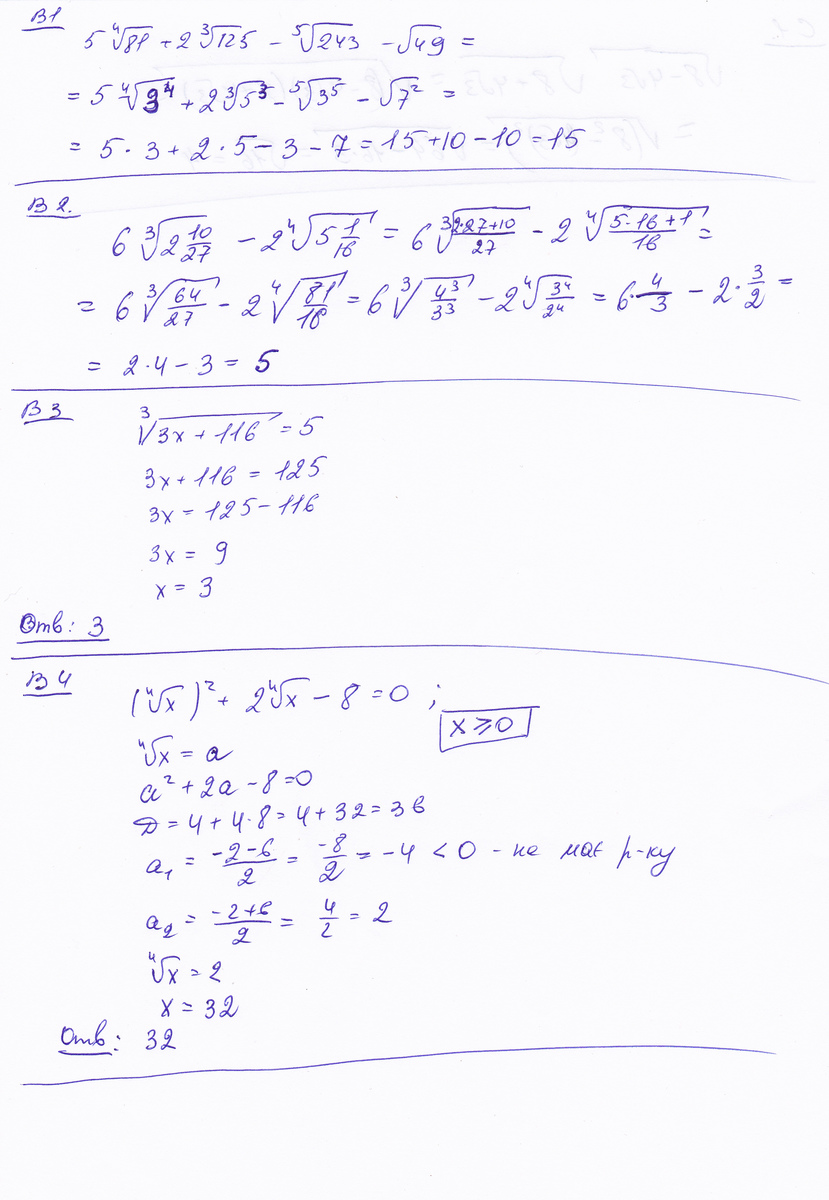 В1
5 ⁴√81 + 2 ³√125 − ⁵√243 − √49 =
= 5 ⁴√3⁴ + 2 ³√5³ − ⁵√3⁵ − √7² =
= 5 · 3 + 2 · 5 − 3 − 7 = 15 + 10 − 10 = 15
В 2.
6 ³√(2 10/27) − 2 ⁴√(5 1/16) = 6 ³√((2·27+10)/27) − 2 ⁴√((5·16+1)/16) =
= 6 ³√(64/27) − 2 ⁴√(81/16) = 6 ³√(4³/3³) − 2 ⁴√(3⁴/2⁴) = 6 · 4/3 − 2 · 3/2 =
= 2·4 − 3 = 5
В 3
³√(3x + 116) = 5
3x + 116 = 125
3x = 125 − 116
3x = 9
x = 3
Отв: 3
В 4
(⁴√x)² + 2 ⁴√x − 8 = 0 ;
x ⩾ 0
⁴√x = a
a² + 2a − 8 = 0
D = 4 + 4·8 = 4 + 32 = 36
a₁ = (−2−6)/2 = −8/2 = −4 < 0 - не має р-ку
a₂ = (−2+6)/2 = 4/2 = 2
⁴√x = 2
x = 32
Отв: 32